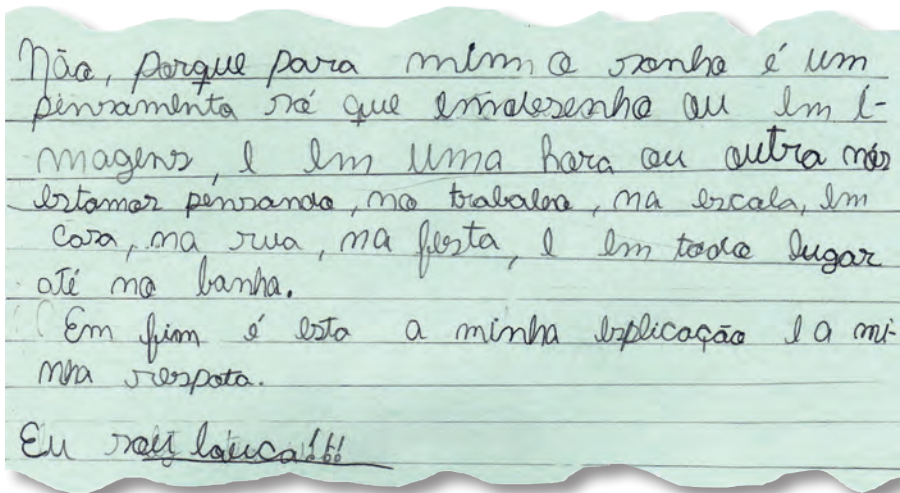 Não, porque para mim o sonho é um
pensamento só que em desenho ou em i-
magens, e em uma hora ou outra nós
estamos pensando, no trabalho, na escola, em
casa, na rua, na festa, e em todo lugar
até no banho.
Em fim é esta a minha esplicação e a mi-
nha respota.
Eu sou louca!!!